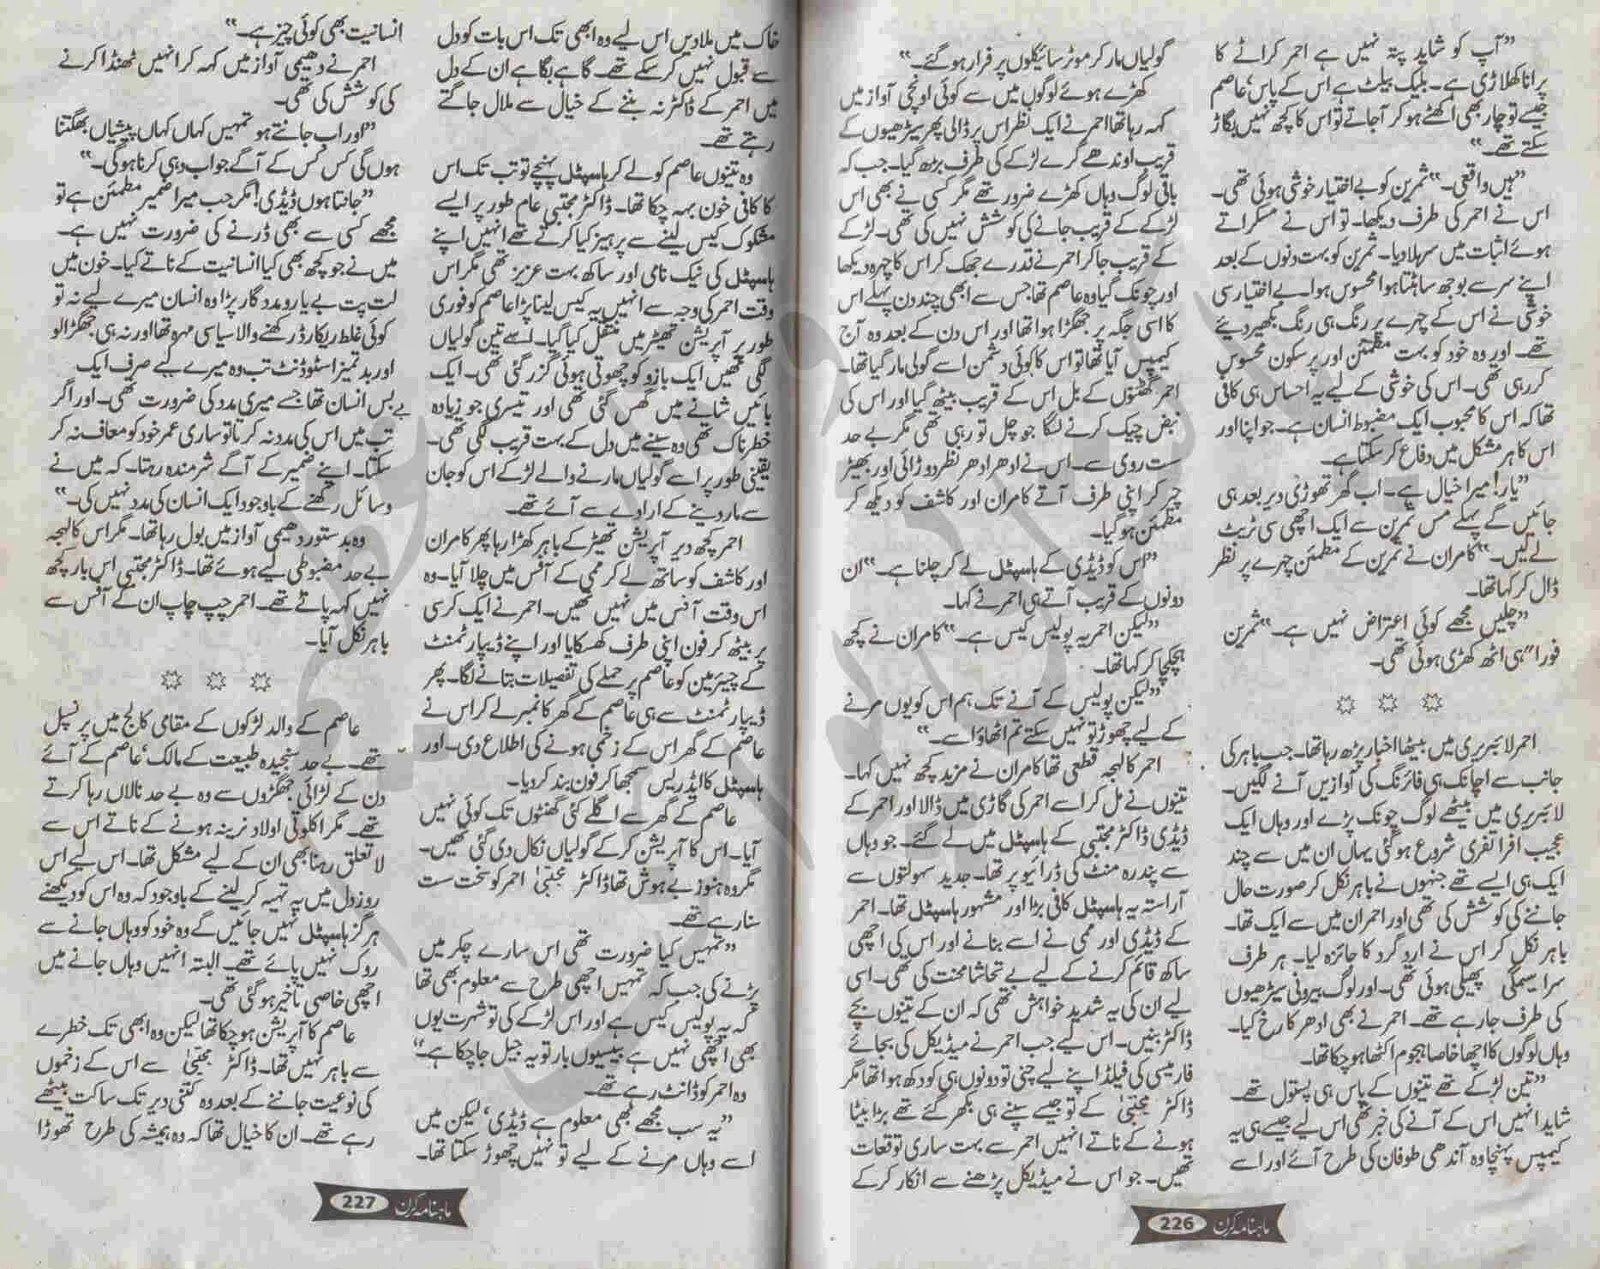 ”آپ کو شاید پتہ نہیں ہے احمر کراٹے کا
پرانا کھلاڑی ہے۔ بلیک بیلٹ ہے اس کے پاس، عاصم
جیسے تو چار بھی اکٹھے ہو کر آجاتے تو اس کا کچھ نہیں بگاڑ
سکتے تھے۔“
”ہیں واقعی۔“ ثمرین کو بے اختیار خوشی ہوئی تھی۔
اس نے احمر کی طرف دیکھا۔ تو اس نے مسکراتے
ہوئے اثبات میں سر ہلا دیا۔ ثمرین کو بہت دنوں کے بعد
اپنے سر سے بوجھ سا ہٹتا ہوا محسوس ہوا بے اختیار سی
خوشی نے اس کے چہرے پر رنگ ہی رنگ بکھیر دیئے
تھے۔ اور وہ خود کو بہت مطمئن اور پرسکون محسوس
کر رہی تھی۔ اس کی خوشی کے لیے یہ احساس ہی کافی
تھا کہ اس کا محبوب ایک مضبوط انسان ہے۔ جو اپنا اور
اس کا ہر مشکل میں دفاع کر سکتا ہے۔
”یار! میرا خیال ہے۔ اب گھر تھوڑی دیر بعد ہی
جائیں گے پہلے مس ثمرین سے ایک اچھی سی ٹریٹ
لے لیں۔“ کامران نے ثمرین کے مطمئن چہرے پر نظر
ڈال کر کہا تھا۔
”چلیں مجھے کوئی اعتراض نہیں ہے۔“ ثمرین
فورا“ ہی اٹھ کھڑی ہوئی تھی۔
☼ ☼ ☼
احمر لائبریری میں بیٹھا اخبار پڑھ رہا تھا۔ جب باہر کی
جانب سے اچانک ہی فائرنگ کی آوازیں آنے لگیں۔
لائبریری میں بیٹھے لوگ چونک پڑے اور وہاں ایک
عجیب افراتفری شروع ہو گئی یہاں ان میں سے چند
ایک ہی ایسے تھے جنہوں نے باہر نکل کر صورت حال
جاننے کی کوشش کی تھی اور احمر ان میں سے ایک تھا۔
باہر نکل کر اس نے ارد گرد کا جائزہ لیا۔ ہر طرف
سراسیمگی پھیلی ہوئی تھی۔ اور لوگ بیرونی سیڑھیوں
کی طرف جا رہے تھے۔ احمر نے بھی ادھر کا رخ کیا۔
وہاں لوگوں کا اچھا خاصا ہجوم اکٹھا ہو چکا تھا۔
”تین لڑکے تھے تینوں کے پاس ہی پستول تھے۔
شاید انہیں اس کے آنے کی خبر تھی اس لیے جیسے ہی یہ
کیمپس پہنچا وہ آندھی طوفان کی طرح آئے اور اسے
گولیاں مار کر موٹر سائیکلوں پر فرار ہو گئے۔“
کھڑے ہوئے لوگوں میں سے کوئی اونچی آواز میں
کہہ رہا تھا احمر نے ایک نظر اس پر ڈالی پھر سیڑھیوں کے
قریب اوندھے گرے لڑکے کی طرف بڑھ گیا۔ جب کہ
باقی لوگ وہاں کھڑے ضرور تھے مگر کسی نے بھی اس
لڑکے کے قریب جانے کی کوشش نہیں کی تھی۔ لڑکے
کے قریب جا کر احمر نے قدرے جھک کر اس کا چہرہ دیکھا
اور چونک گیا وہ عاصم تھا، جس سے ابھی چند دن پہلے اس
کا اسی جگہ پر جھگڑا ہوا تھا اور اس دن کے بعد وہ آج
کیمپس آیا تھا تو اس کا کوئی دشمن اسے گولی مار گیا تھا۔
احمر گھٹنوں کے بل اس کے قریب بیٹھ گیا اور اس کی
نبض چیک کرنے لگا جو چل تو رہی تھی مگر بے حد
ست روی سے۔ اس نے ادھر ادھر نظر دوڑائی اور بھیڑ
چیر کر اپنی طرف آتے کامران اور کاشف کو دیکھ کر
مطمئن ہو گیا۔
”اس کو ڈیڈی کے ہاسپٹل لے کر چلنا ہے۔“ ان
دونوں کے قریب آتے ہی احمر نے کہا۔
”لیکن احمر یہ پولیس کیس ہے۔“ کامران نے کچھ
ہچکچا کر کہا تھا۔
”لیکن پولیس کے آنے تک، ہم اس کو یوں مرنے
کے لیے چھوڑ تو نہیں سکتے تم اٹھاؤ اسے۔“
احمر کا لہجہ قطعی تھا کامران نے مزید کچھ نہیں کہا۔
تینوں نے مل کر اسے احمر کی گاڑی میں ڈالا اور احمر کے
ڈیڈی ڈاکٹر مجتبیٰ کے ہاسپٹل میں لے گئے۔ جو وہاں
سے پندرہ منٹ کی ڈرائیو پر تھا۔ جدید سہولتوں سے
آراستہ یہ ہاسپٹل کافی بڑا اور مشہور ہاسپٹل تھا۔ احمر
کے ڈیڈی اور ممی نے اسے بنانے اور اس کی اچھی
ساکھ قائم کرنے کے لیے بے تحاشا محنت کی تھی۔ اسی
لیے ان کی یہ شدید خواہش تھی کہ ان کے تینوں بچے
ڈاکٹر بنیں۔ اس لیے جب احمر نے میڈیکل کی بجائے
فارمیسی کی فیلڈ اپنے لیے چنی تو دونوں ہی کو دکھ ہوا تھا مگر
ڈاکٹر مجتبیٰ کے تو جیسے سپنے ہی بکھر گئے تھے بڑا بیٹا
ہونے کے ناتے انہیں احمر سے بہت ساری توقعات
تھیں۔ جو اس نے میڈیکل پڑھنے سے انکار کر کے
ماہنامہ کرن 226
خاک میں ملا دیں اس لیے وہ ابھی تک اس بات کو دل
سے قبول نہیں کر سکے تھے۔ گاہے بگاہے ان کے دل
میں احمر کے ڈاکٹر نہ بننے کے خیال سے ملال جاگتے
رہتے تھے۔
وہ تینوں عاصم کو لے کر ہاسپٹل پہنچے تو تب تک اس
کا کافی خون بہہ چکا تھا۔ ڈاکٹر مجتبیٰ عام طور پر ایسے
مشکوک کیس لینے سے پرہیز کیا کرتے تھے انہیں اپنے
ہاسپٹل کی نیک نامی اور ساکھ بہت عزیز تھی مگر اس
وقت احمر کی وجہ سے انہیں یہ کیس لینا پڑا عاصم کو فوری
طور پر آپریشن تھیٹر میں منتقل کیا گیا۔ اسے تین گولیاں
لگی تھیں ایک بازو کو چھوتی ہوئی گزر گئی تھی۔ ایک
بائیں شانے میں گھس گئی تھی اور تیسری جو زیادہ
خطرناک تھی وہ سینے میں دل کے بہت قریب لگی تھی۔
یقینی طور پر اسے گولیاں مارنے والے لڑکے اس کو جان
سے مار دینے کے ارادے سے آئے تھے۔
احمر کچھ دیر آپریشن تھیٹر کے باہر کھڑا رہا پھر کامران
اور کاشف کو ساتھ لے کر ممی کے آفس میں چلا آیا۔ وہ
اس وقت آفس میں نہیں تھیں۔ احمر نے ایک کرسی
پر بیٹھ کر فون اپنی طرف کھسکایا اور اپنے ڈیپارٹمنٹ
کے چیئرمین کو عاصم پر حملے کی تفصیلات بتانے لگا۔ پھر
ڈیپارٹمنٹ سے ہی عاصم کے گھر کا نمبر لے کر اس نے
عاصم کے گھر اس کے زخمی ہونے کی اطلاع دی۔ اور
ہاسپٹل کا ایڈریس سمجھا کر فون بند کر دیا۔
عاصم کے گھر سے اگلے کئی گھنٹوں تک کوئی نہیں
آیا۔ اس کا آپریشن کر کے گولیاں نکال دی گئی تھیں۔
مگر وہ ہنوز بے ہوش تھا ڈاکٹر مجتبیٰ احمر کو سخت ست
سنا رہے تھے۔
”تمہیں کیا ضرورت تھی اس سارے چکر میں
پڑنے کی جب کہ تمہیں اچھی طرح سے معلوم بھی تھا
کہ یہ پولیس کیس ہے اور اس لڑکے کی تو شہرت یوں
بھی اچھی نہیں ہے بیسیوں بار تو یہ جیل جا چکا ہے۔“
وہ احمر کو ڈانٹ رہے تھے۔
”یہ سب مجھے بھی معلوم ہے ڈیڈی، لیکن میں
اسے وہاں مرنے کے لیے تو نہیں چھوڑ سکتا تھا۔
انسانیت بھی کوئی چیز ہے۔“
احمر نے دھیمی آواز میں کہہ کر انہیں ٹھنڈا کرنے
کی کوشش کی تھی۔
”اور اب جانتے ہو تمہیں کہاں کہاں پیشیاں بھگتنا
ہوں گی کس کس کے آگے جواب دہی کرنا ہو گی۔“
”جانتا ہوں ڈیڈی! مگر جب میرا ضمیر مطمئن ہے تو
مجھے کسی سے بھی ڈرنے کی ضرورت نہیں ہے۔
میں نے جو کچھ بھی کیا انسانیت کے ناتے کیا۔ خون میں
لت پت بے یارو مددگار پڑا وہ انسان میرے لیے نہ تو
کوئی غلط ریکارڈ رکھنے والا سیاسی مہرہ تھا اور نہ ہی جھگڑالو
اور بدتمیز اسٹوڈنٹ تب وہ میرے لیے صرف ایک
بے بس انسان تھا جسے میری مدد کی ضرورت تھی۔ اور اگر
تب میں اس کی مدد نہ کرتا تو ساری عمر خود کو معاف نہ کر
سکتا۔ اپنے ضمیر کے آگے شرمندہ رہتا۔ کہ میں نے
وسائل رکھنے کے باوجود ایک انسان کی مدد نہیں کی۔“
وہ بدستور دھیمی آواز میں بول رہا تھا۔ مگر اس کا لہجہ
بے حد مضبوطی لیے ہوئے تھا۔ ڈاکٹر مجتبیٰ اس بار کچھ
نہیں کہہ پائے تھے۔ احمر چپ چاپ ان کے آفس سے
باہر نکل آیا۔
☼ ☼ ☼
عاصم کے والد لڑکوں کے مقامی کالج میں پرنسپل
تھے۔ بے حد سنجیدہ طبیعت کے مالک، عاصم کے آئے
دن کے لڑائی جھگڑوں سے وہ بے حد نالاں رہا کرتے
تھے۔ مگر اکلوتی اولاد نرینہ ہونے کے ناتے اس سے
لا تعلق رہنا بھی ان کے لیے مشکل تھا۔ اس لیے اس
روز دل میں یہ تہیہ کر لینے کے باوجود کہ وہ اس کو دیکھنے
ہرگز ہاسپٹل نہیں جائیں گے وہ خود کو وہاں جانے سے
روک نہیں پائے تھے۔ البتہ انہیں وہاں جانے میں
اچھی خاصی تاخیر ہو گئی تھی۔
عاصم کا آپریشن ہو چکا تھا لیکن وہ ابھی تک خطرے
سے باہر نہیں تھا۔ ڈاکٹر مجتبیٰ سے اس کے زخموں
کی نوعیت جاننے کے بعد وہ کتنی دیر تک ساکت بیٹھے
رہے تھے۔ ان کا خیال تھا کہ وہ ہمیشہ کی طرح تھوڑا
ماہنامہ کرن 227